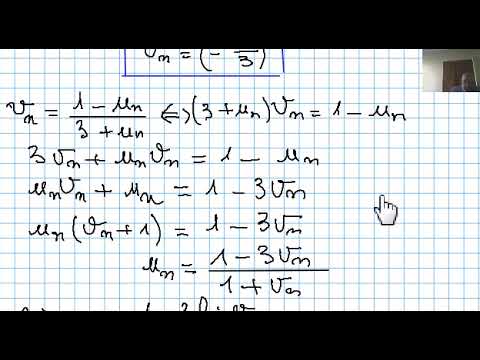 v_n = (- —/3)
v_n = (1 - u_n)/(3 + u_n) ⇔ (3 + u_n) v_n = 1 - u_n
3 v_n + u_n v_n = 1 - u_n
u_n v_n + u_n = 1 - 3 v_n
u_n (v_n + 1) = 1 - 3 v_n
u_n = (1 - 3 v_n)/(1 + v_n)